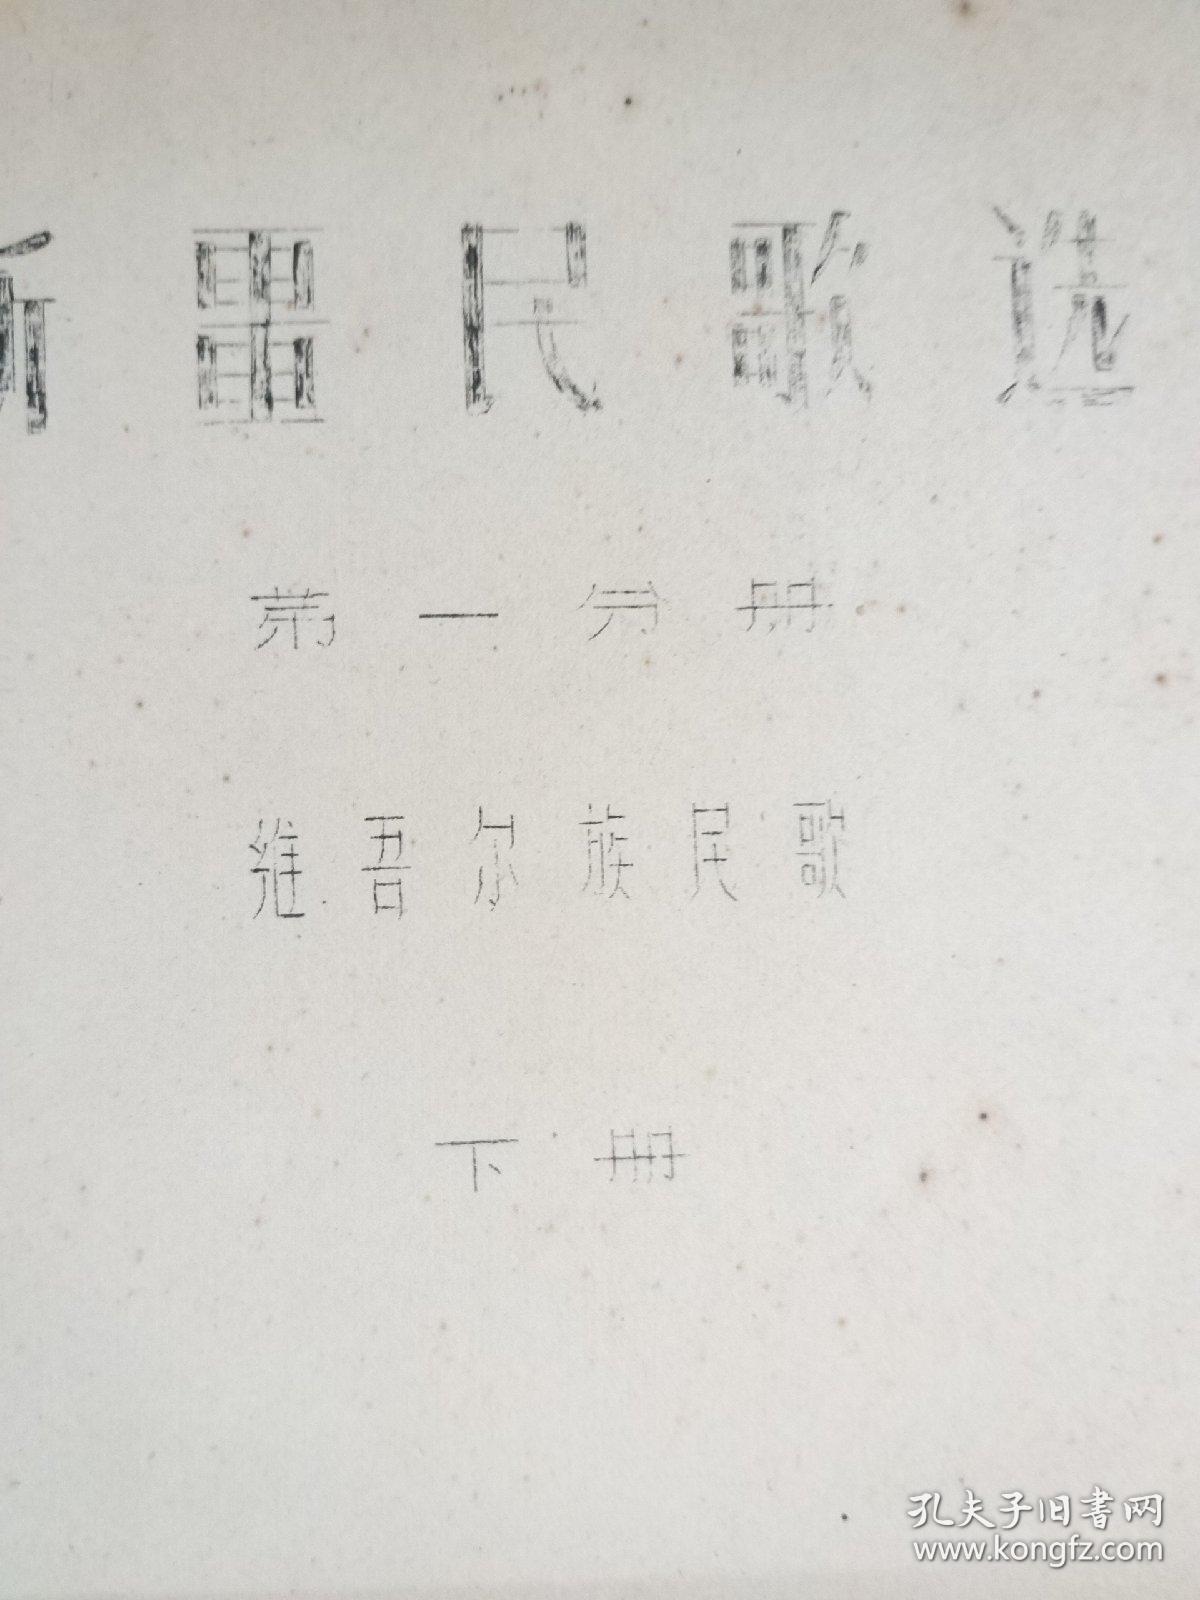 新畺民歌选
第一分册
维吾尔族民歌
下册
孔夫子旧书网
www.kongfz.com